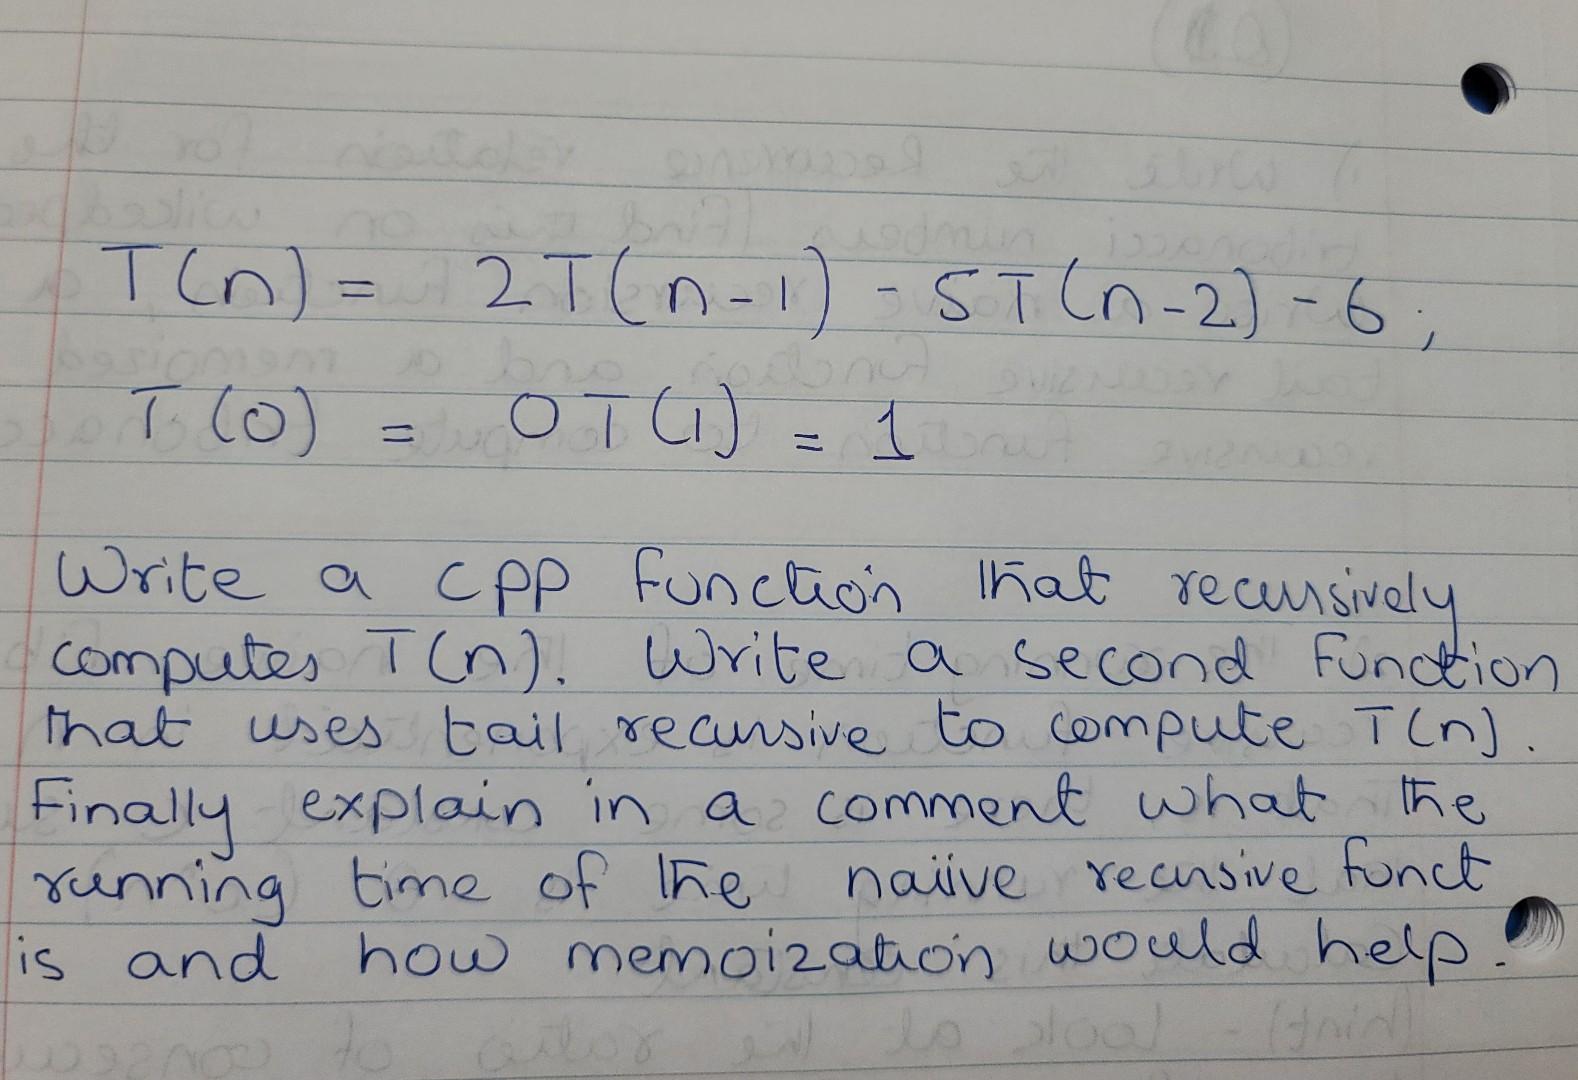 T(n) = 2T(n-1) - 5T(n-2) - 6;
T(0) = 0 T(1) = 1
Write a cpp function that recursively
computes T(n). Write a second function
that uses tail recursive to compute T(n).
Finally explain in a comment what the
running time of the naiive recursive funct
is and how memoization would help.